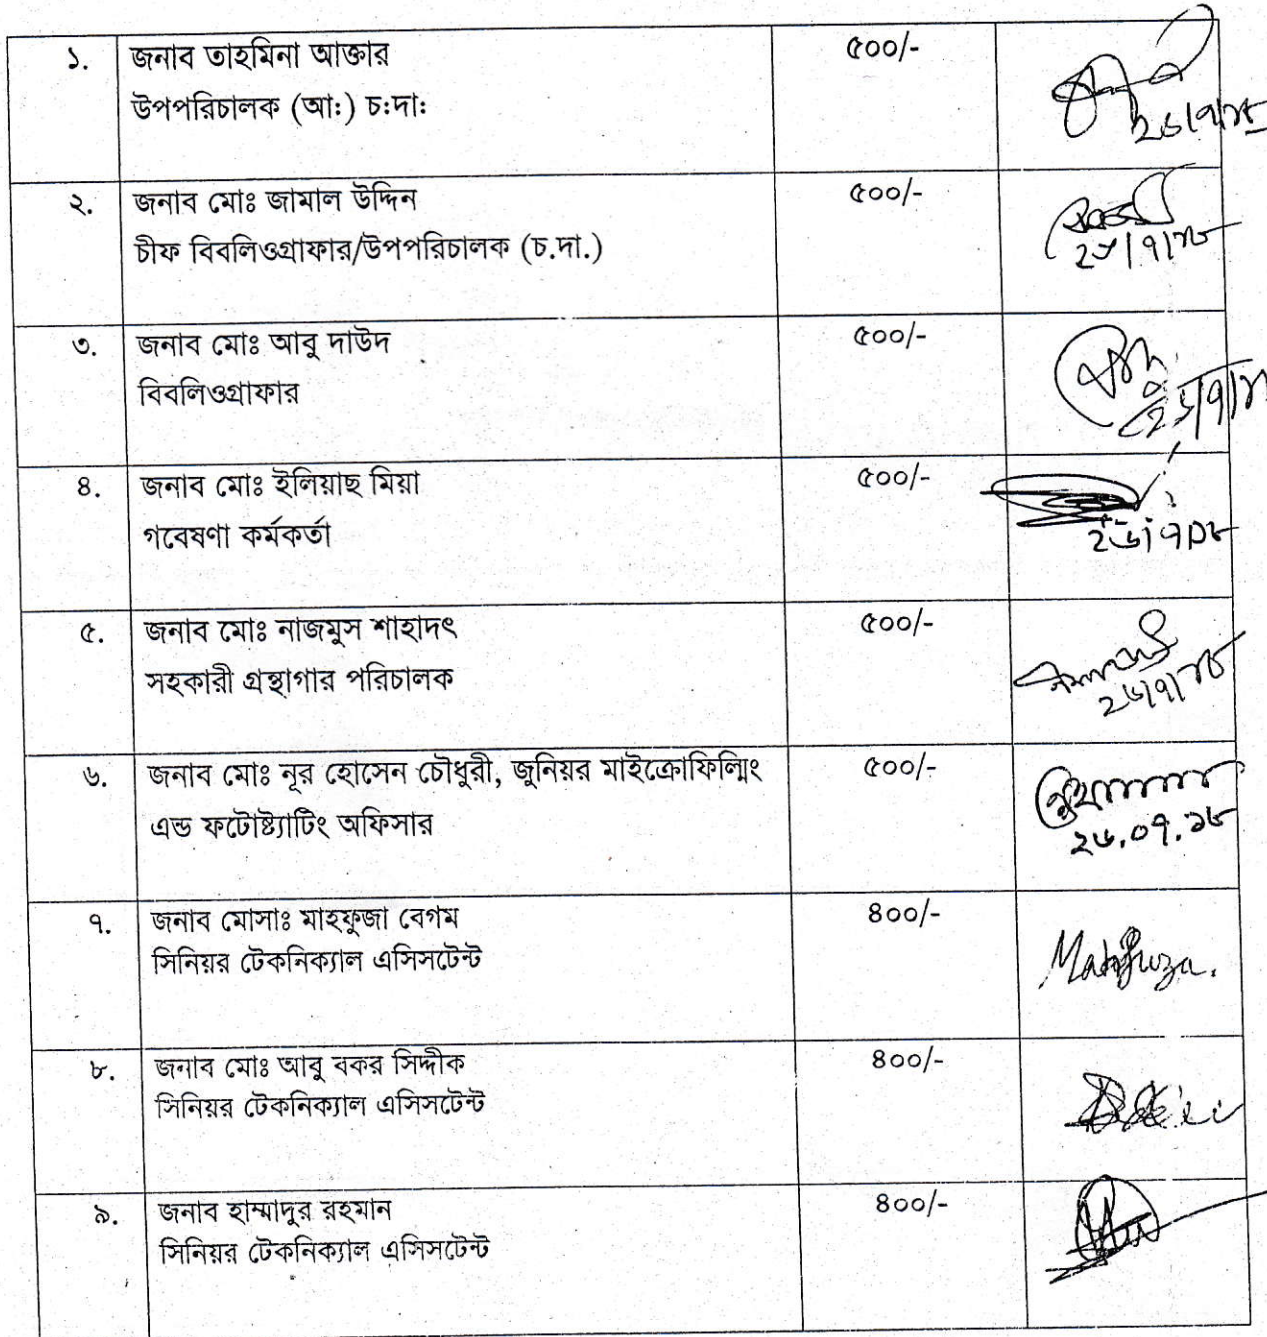 ১. জনাব তাহমিনা আক্তার ৫০০/-
উপপরিচালক (আ:) চ:দা:
২৬/৭/১৮
২. জনাব মোঃ জামাল উদ্দিন ৫০০/-
চীফ বিবলিওগ্রাফার/উপপরিচালক (চ.দা.)
২৬/৭/১৮
৩. জনাব মোঃ আবু দাউদ ৫০০/-
বিবলিওগ্রাফার
২৬/৭/১৮
৪. জনাব মোঃ ইলিয়াছ মিয়া ৫০০/-
গবেষণা কর্মকর্তা
২৬/৭/১৮
৫. জনাব মোঃ নাজমুস শাহাদৎ ৫০০/-
সহকারী গ্রন্থাগার পরিচালক
২৬/৭/১৮
৬. জনাব মোঃ নূর হোসেন চৌধুরী, জুনিয়র মাইক্রোফিল্মিং ৫০০/-
এন্ড ফটোষ্ট্যাটিং অফিসার
২৬.০৭.১৮
৭. জনাব মোসাঃ মাহফুজা বেগম ৪০০/-
সিনিয়র টেকনিক্যাল এসিসটেন্ট
Mahfuza.
৮. জনাব মোঃ আবু বকর সিদ্দীক ৪০০/-
সিনিয়র টেকনিক্যাল এসিসটেন্ট
৯. জনাব হাম্মাদুর রহমান ৪০০/-
সিনিয়র টেকনিক্যাল এসিসটেন্ট